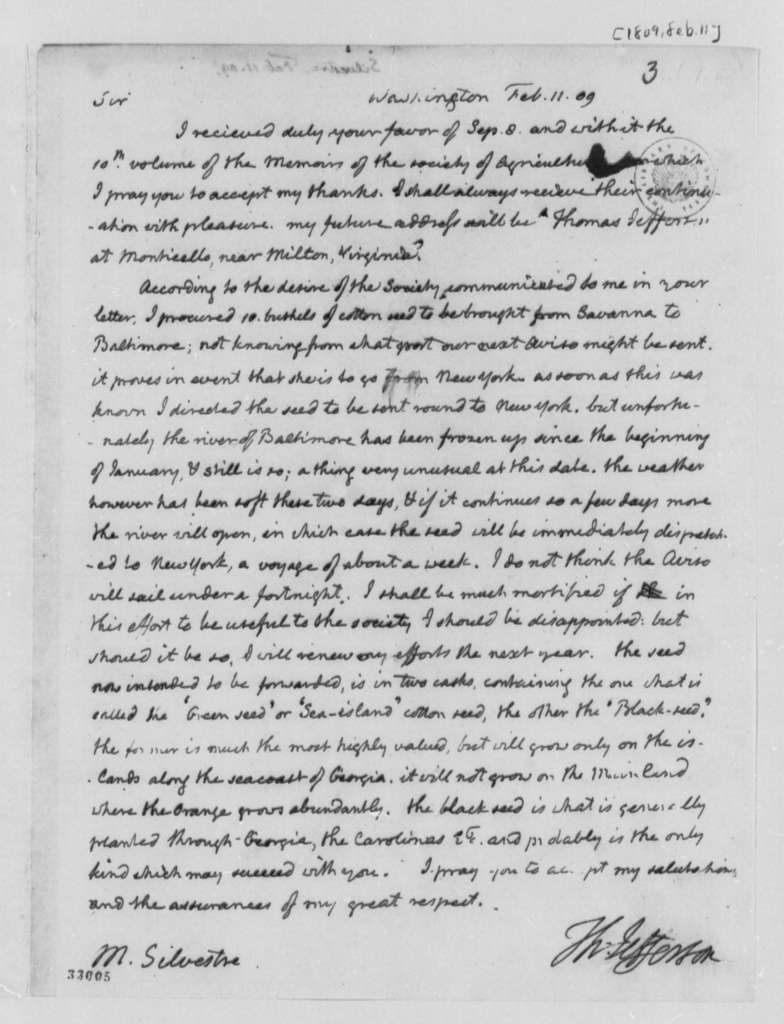 [1809, Feb. 11]
3
Sir Washington Feb. 11. 09
I recieved duly your favor of Sep. 8. and with it the
10th. volume of the Memoirs of the society of Agriculture for which
I pray you to accept my thanks. I shall always recieve their continu-
-ation with pleasure. my future address will be "Thomas Jefferson
at Monticello, near Milton, Virginia."
According to the desire of the Society communicated to me in your
letter, I procured 10. bushels of cotton seed to be brought from Savanna to
Baltimore; not knowing from what port our next Aviso might be sent.
it proves in event that she is to go from New York. as soon as this was
known I directed the seed to be sent round to New York. but unfortu-
-nately the river of Baltimore has been frozen up since the beginning
of January, & still is so; a thing very unusual at this date. the weather
however has been soft these two days, & if it continues so a few days more
the river will open, in which case the seed will be immediately dispatch-
-ed to New York, a voyage of about a week. I do not think the Aviso
will sail under a fortnight. I shall be much mortified if in
this effort to be useful to the society I should be disappointed: but
should it be so, I will renew my efforts the next year. the seed
now intended to be forwarded, is in two casks, containing the one what is
called the 'Green seed' or 'Sea-island" cotton seed, the other the "Black-seed."
the former is much the most highly valued, but will grow only on the is-
-lands along the seacoast of Georgia. it will not grow on the Main land
where the Orange grows abundantly. the black seed is what is generally
planted through Georgia, the Carolinas &c. and probably is the only
kind which may succeed with you. I pray you to accept my salutations
and the assurances of my great respect.
Th: Jefferson
M. Silvestre.
33005